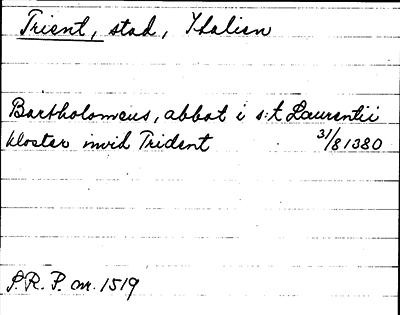 Trient, stad, Italien
Bartholomeus, abbot i s:t Laurentii
kloster invid Trident 31/8 1380
S.R.P. nr. 1519